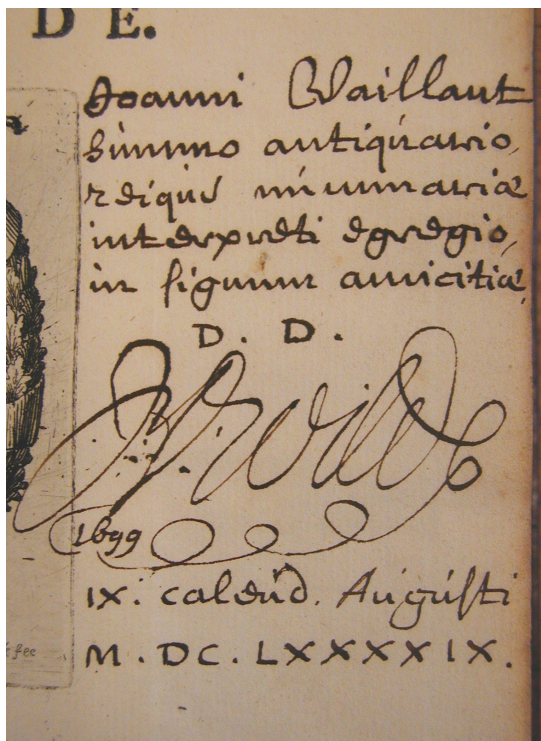 D E.
Joanni Vaillant
summo antiquario,
reique nummariæ
interpreti egregio,
in signum amicitiæ
D. D.
J. de Wilde
1699
IX. calend. Augusti
M. DC. LXXXXIX.
fec